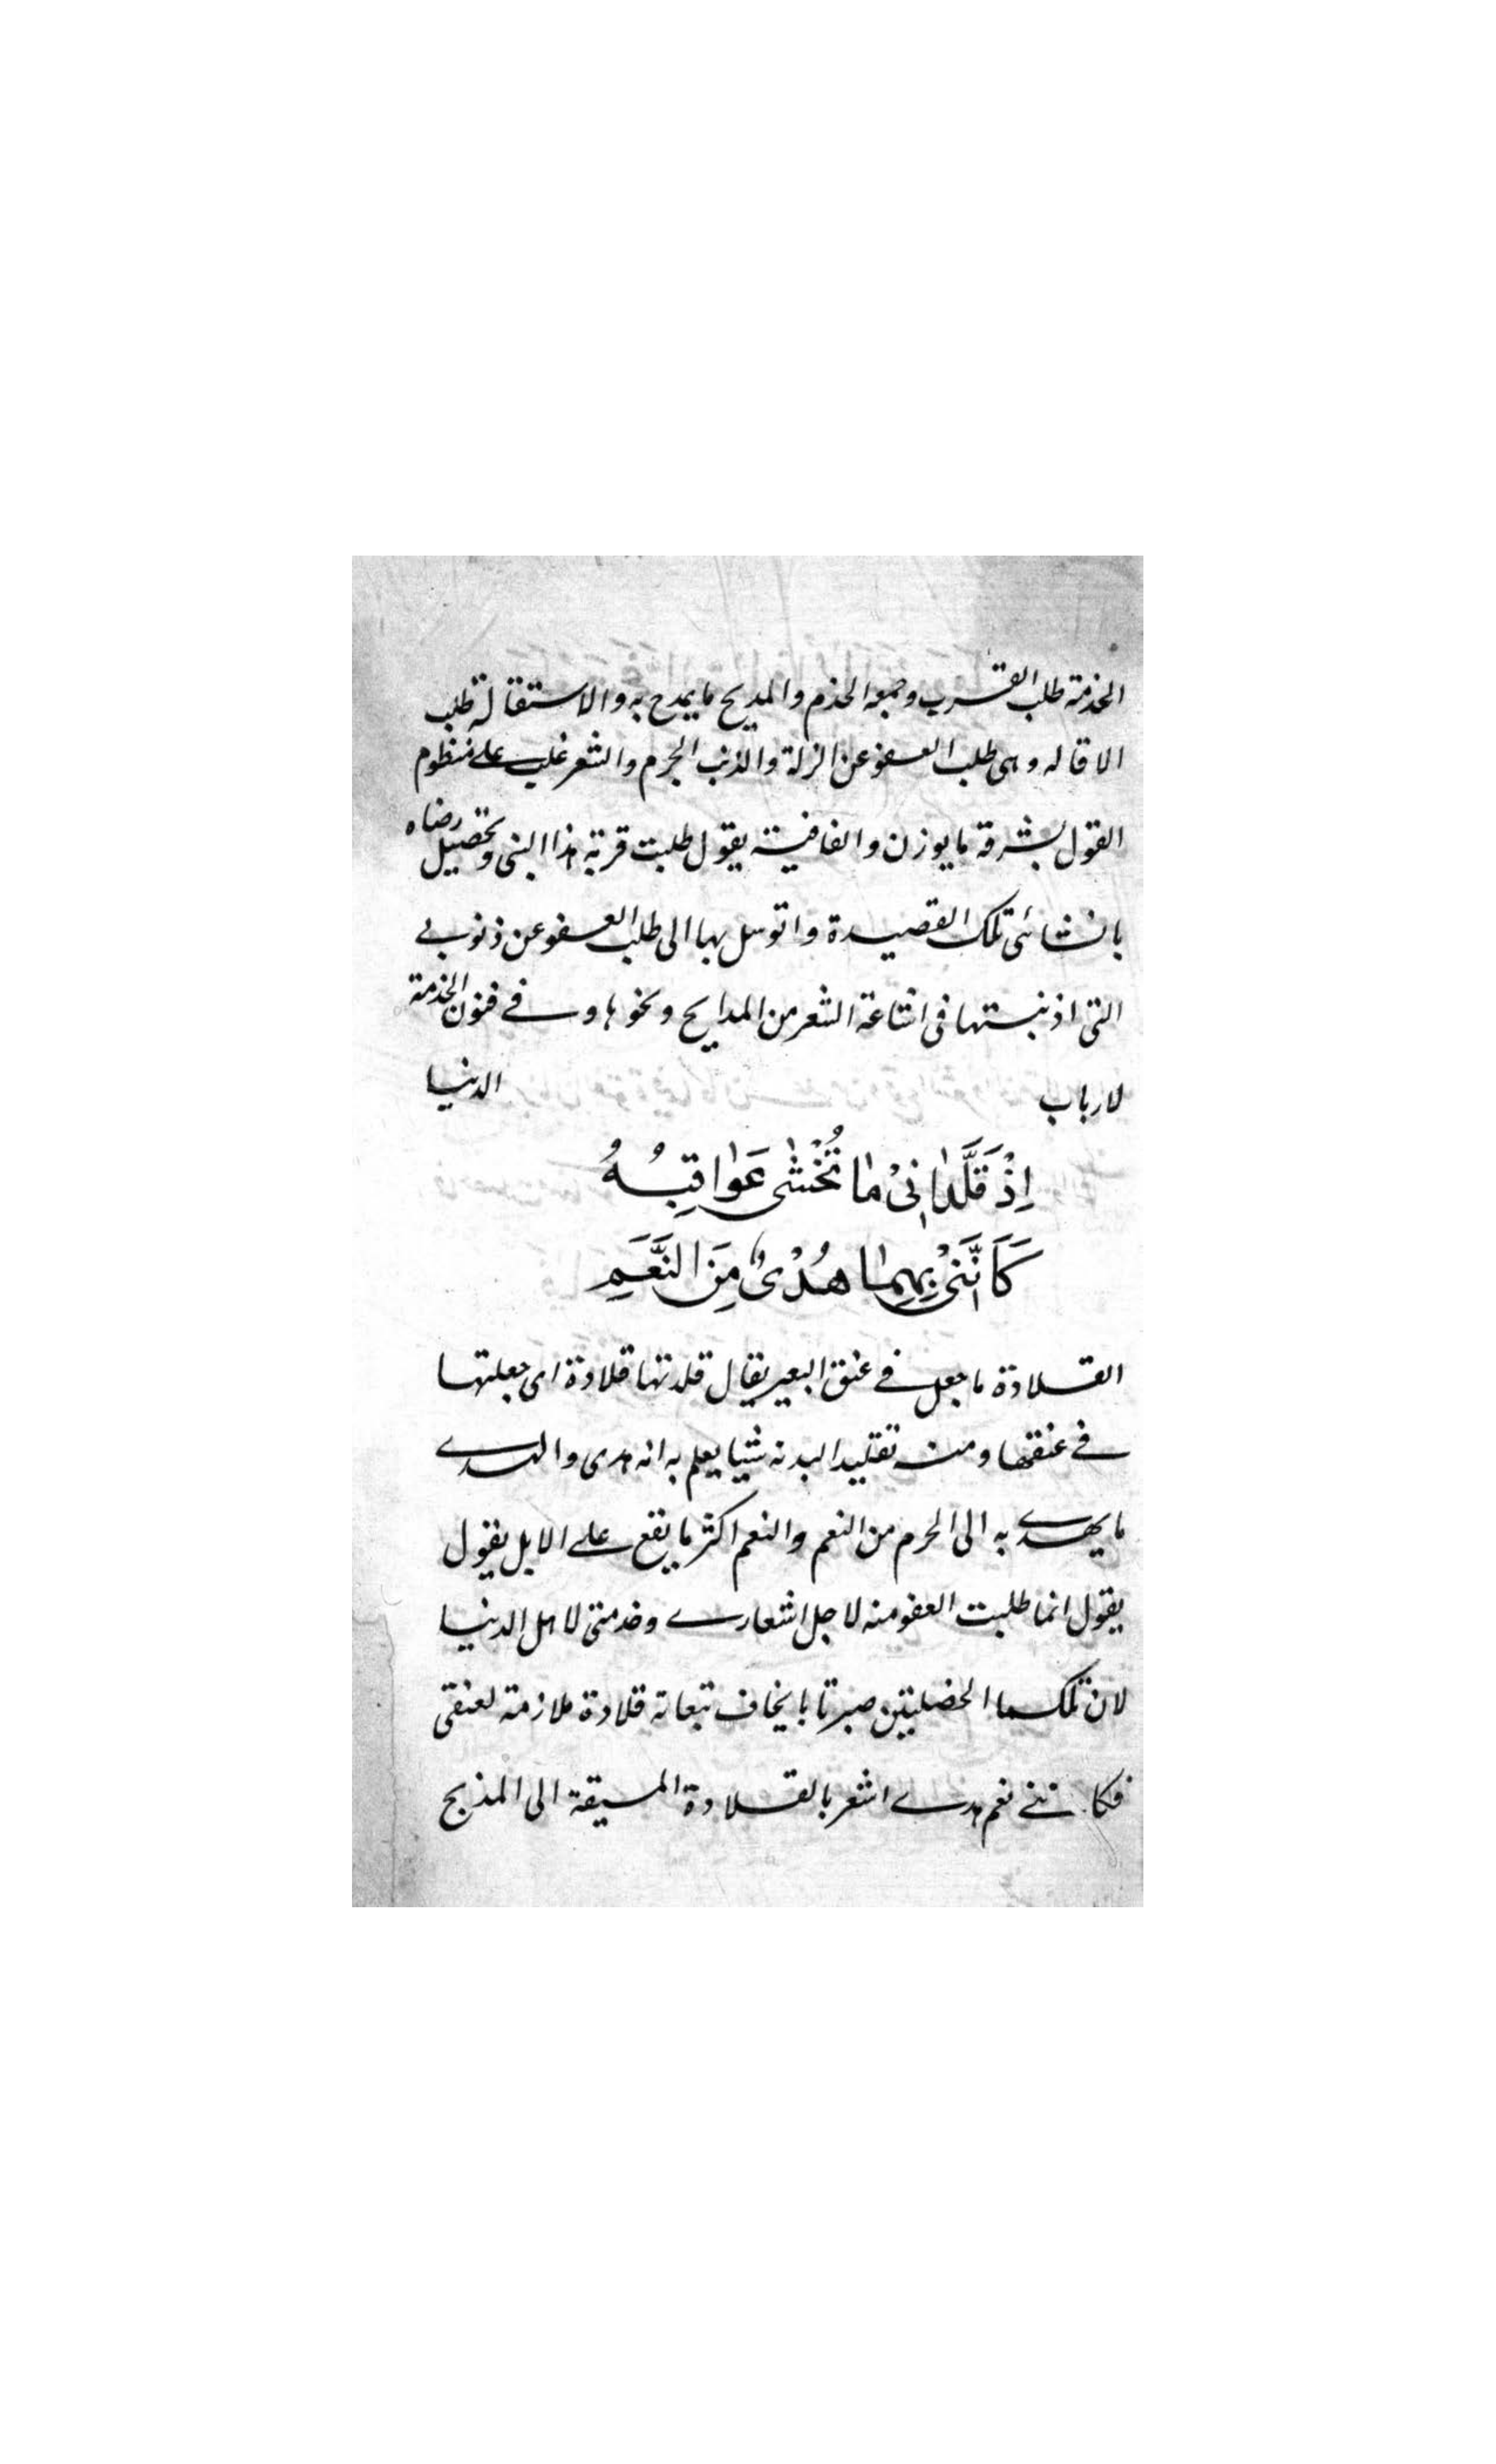 الخدمة طلب القرب وجمعه الخدم والمديح ما يمدح به والاستقالة طلب
الاقاله وهى طلب العفو عن الزلة والذنب الجرم والشعر غلب على منظوم
القول لشرفه ما يوزن والقافية يقول طلبت قربة هذا النبى وتحصيل رضاه
بانشائى تلك القصيدة واتوسل بها الى طلب العفو عن ذنوبى
التى اذنبتها فى اشاعة الشعر من المدايح ونحوها وفى فنون الخدمة
لارباب الدنيا
اِذْ قَلَّدَانِىْ مَا تُخْشٰى عَوَاقِبُهُ
كَاَنَّنِىْ بِهِمَا هُدْىٌ مِنَ النَّعَمِ
القلادة ما جعل فى عنق البعير يقال قلدتها قلادة اى جعلتها
فى عنقها ومنه تقليد البدنه شيا يعلم به انه هدى والهدى
ما يهدى به الى الحرم من النعم والنعم اكثر ما يقع على الابل يقول
يقول انما طلبت العفو منه لاجل اشعارى وخدمتى لاهل الدنيا
لان تلكما الخصلتين صيرتا ما يخاف تبعاته قلادة ملازمة لعنقى
فكاننى نعم هدى اشعر بالقلادة المسيقة الى المذبح